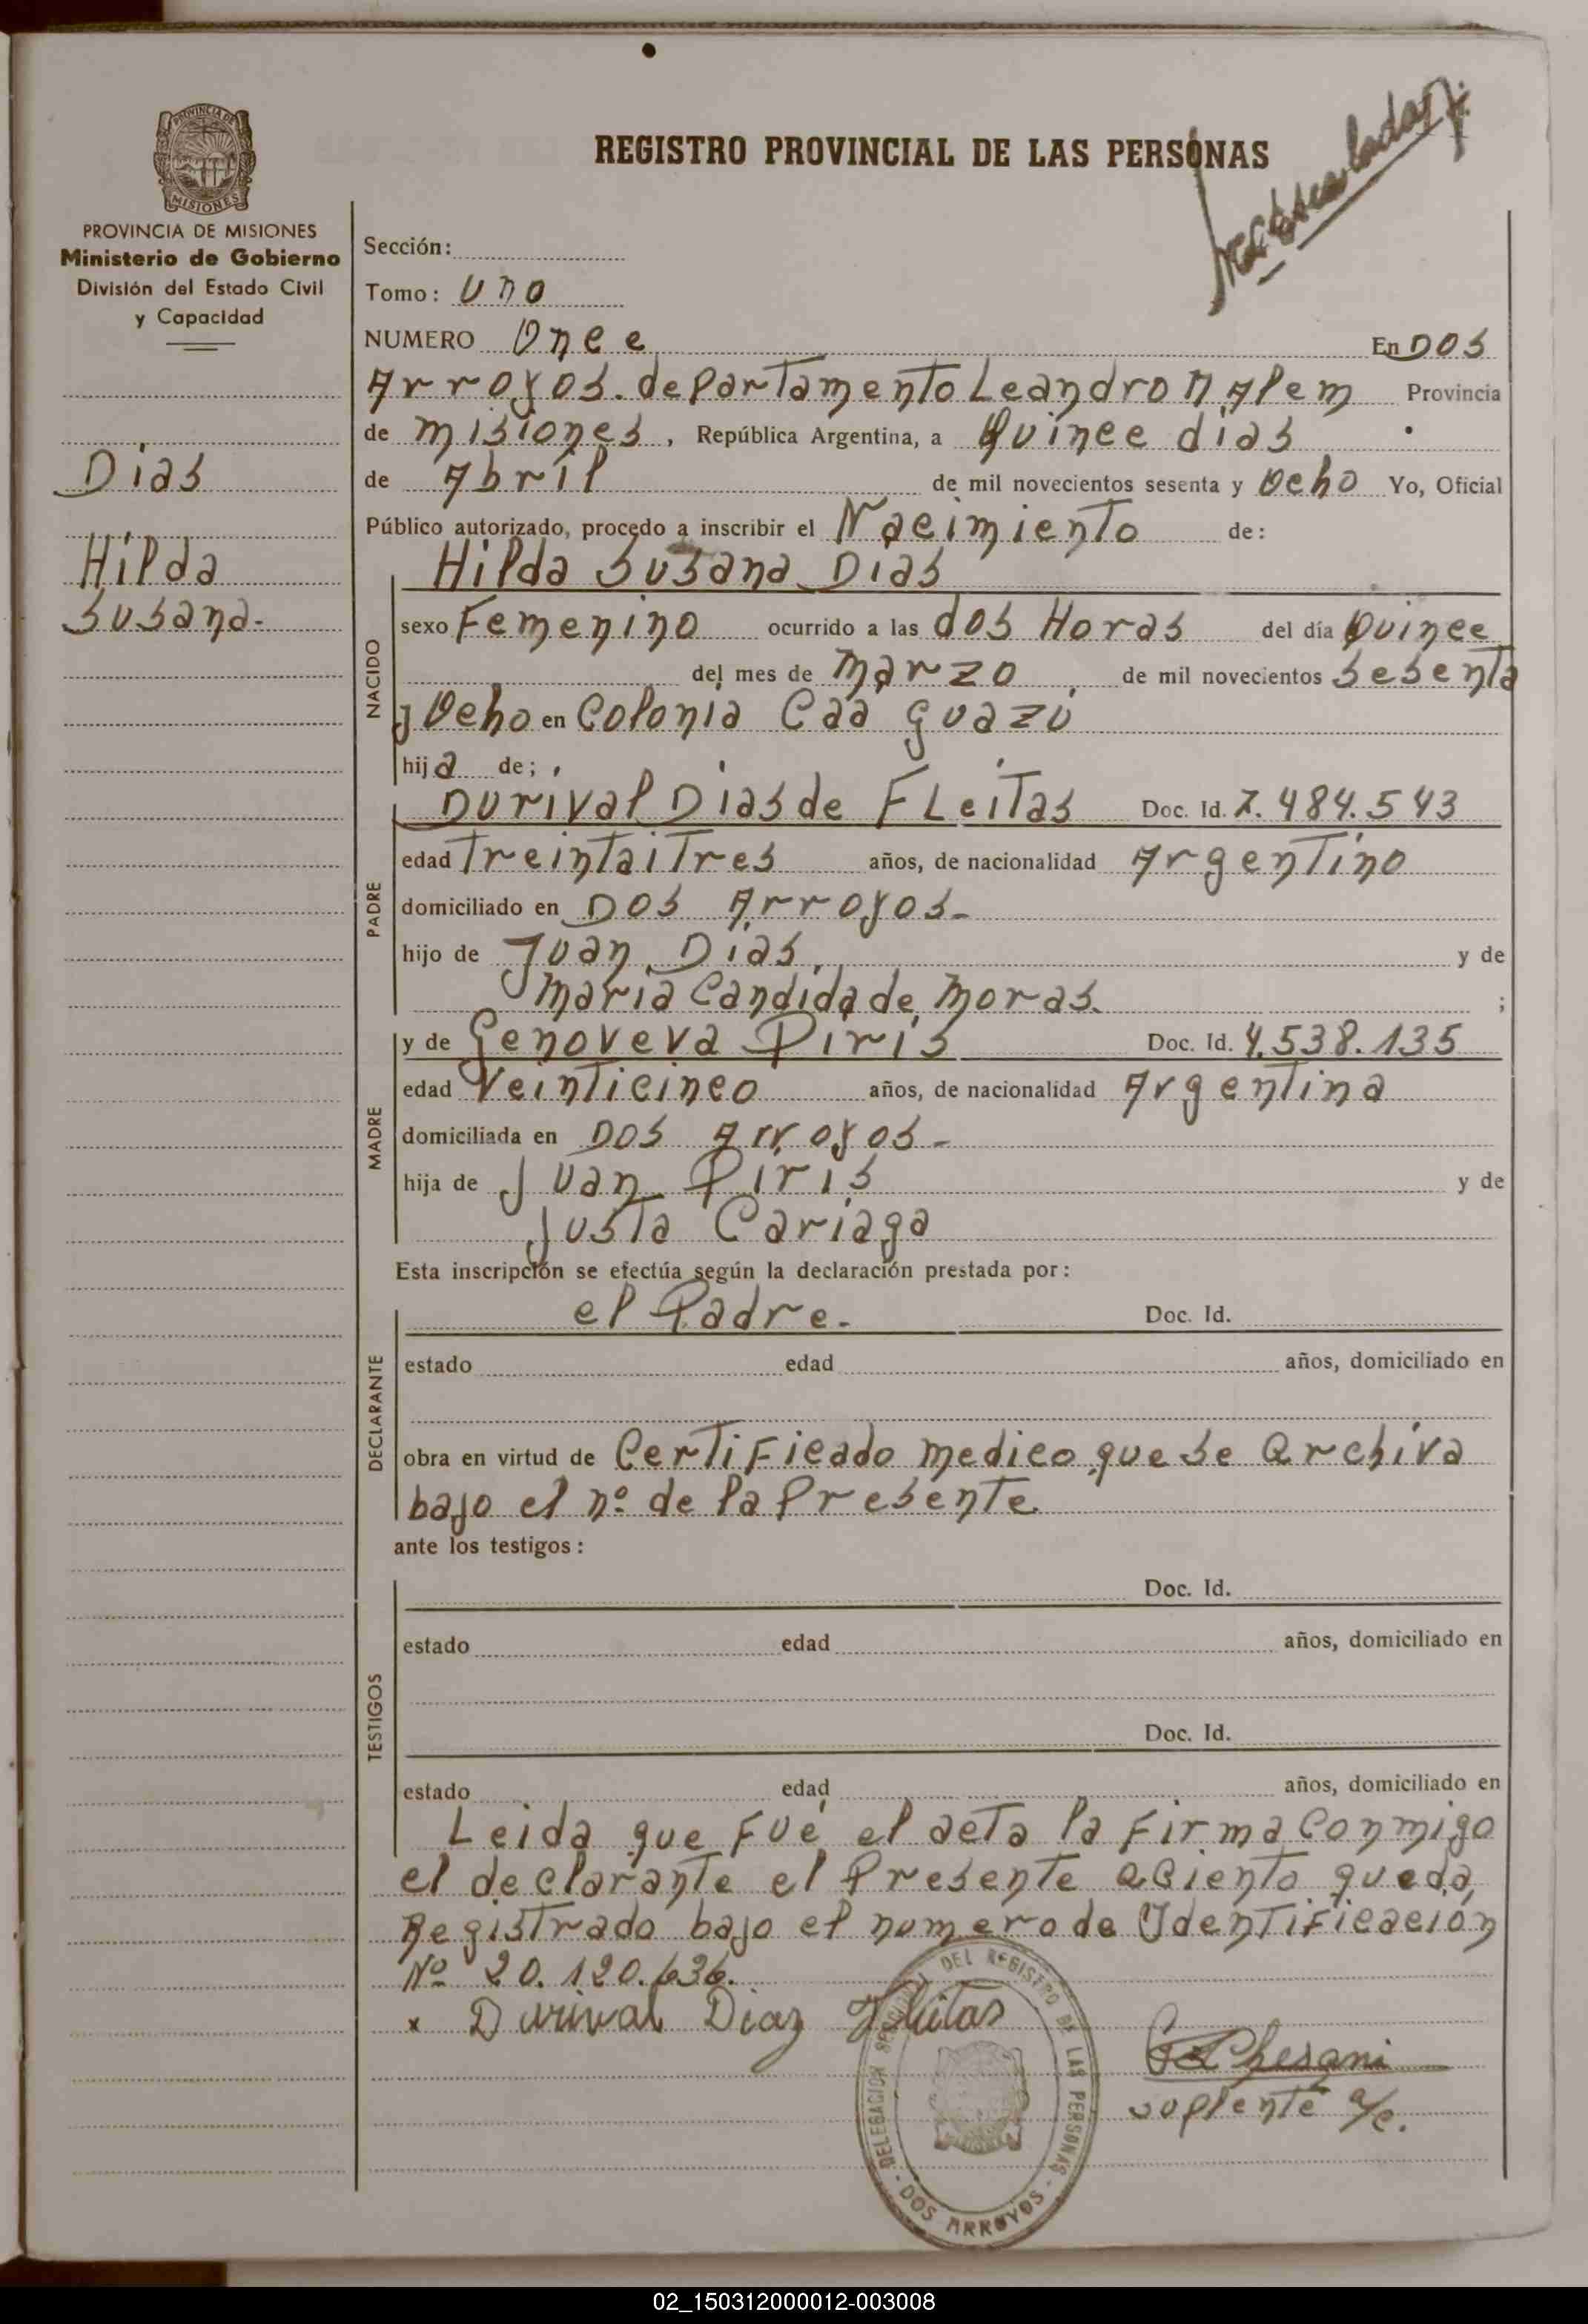 REGISTRO PROVINCIAL DE LAS PERSONAS
PROVINCIA DE
MISIONES
PROVINCIA DE MISIONES
Ministerio de Gobierno
División del Estado Civil
y Capacidad
Dias
Hilda
Susana.-
Sección:
Tomo: Uno
NUMERO Once En Dos
Arroyos. departamento Leandro N Alem Provincia
de misiones, República Argentina, a Quince dias
de Abril de mil novecientos sesenta y Ocho Yo, Oficial
Público autorizado, procedo a inscribir el Nacimiento de:
Hilda Susana Dias
NACIDO
sexo Femenino ocurrido a las dos Horas del día Quince
del mes de marzo, de mil novecientos Sesenta
y Ocho en Colonia Caá Guazú
hija de;
PADRE
Durival Dias de FLeitas Doc. Id. 7.484.543
edad Treintaitres años, de nacionalidad Argentino
domiciliado en Dos Arroyos-
hijo de Juan Dias, y de
maria Candida de moras. ;
MADRE
y de Genoveva Piris Doc. Id. 4.538.135
edad Veinticinco años, de nacionalidad Argentina
domiciliada en Dos Arroyos-
hija de Juan Piris y de
Justa Cariaga
Esta inscripción se efectúa según la declaración prestada por:
DECLARANTE
el Padre- Doc. Id.
estado edad años, domiciliado en
obra en virtud de Certificado medico que se archiva
bajo el nº de la Presente
ante los testigos:
TESTIGOS
Doc. Id.
estado edad años, domiciliado en
Doc. Id.
estado edad años, domiciliado en
Leida que Fué el acta la Firma Conmigo
el declarante el Presente aciento queda
Registrado bajo el numero de Ydentificación
Nº 20.120.636.
x Durival Diaz Fleitas
suplente a/c.
DELEGACION DEL REGISTRO DE LAS PERSONAS - DOS ARROYOS -
02_150312000012-003008